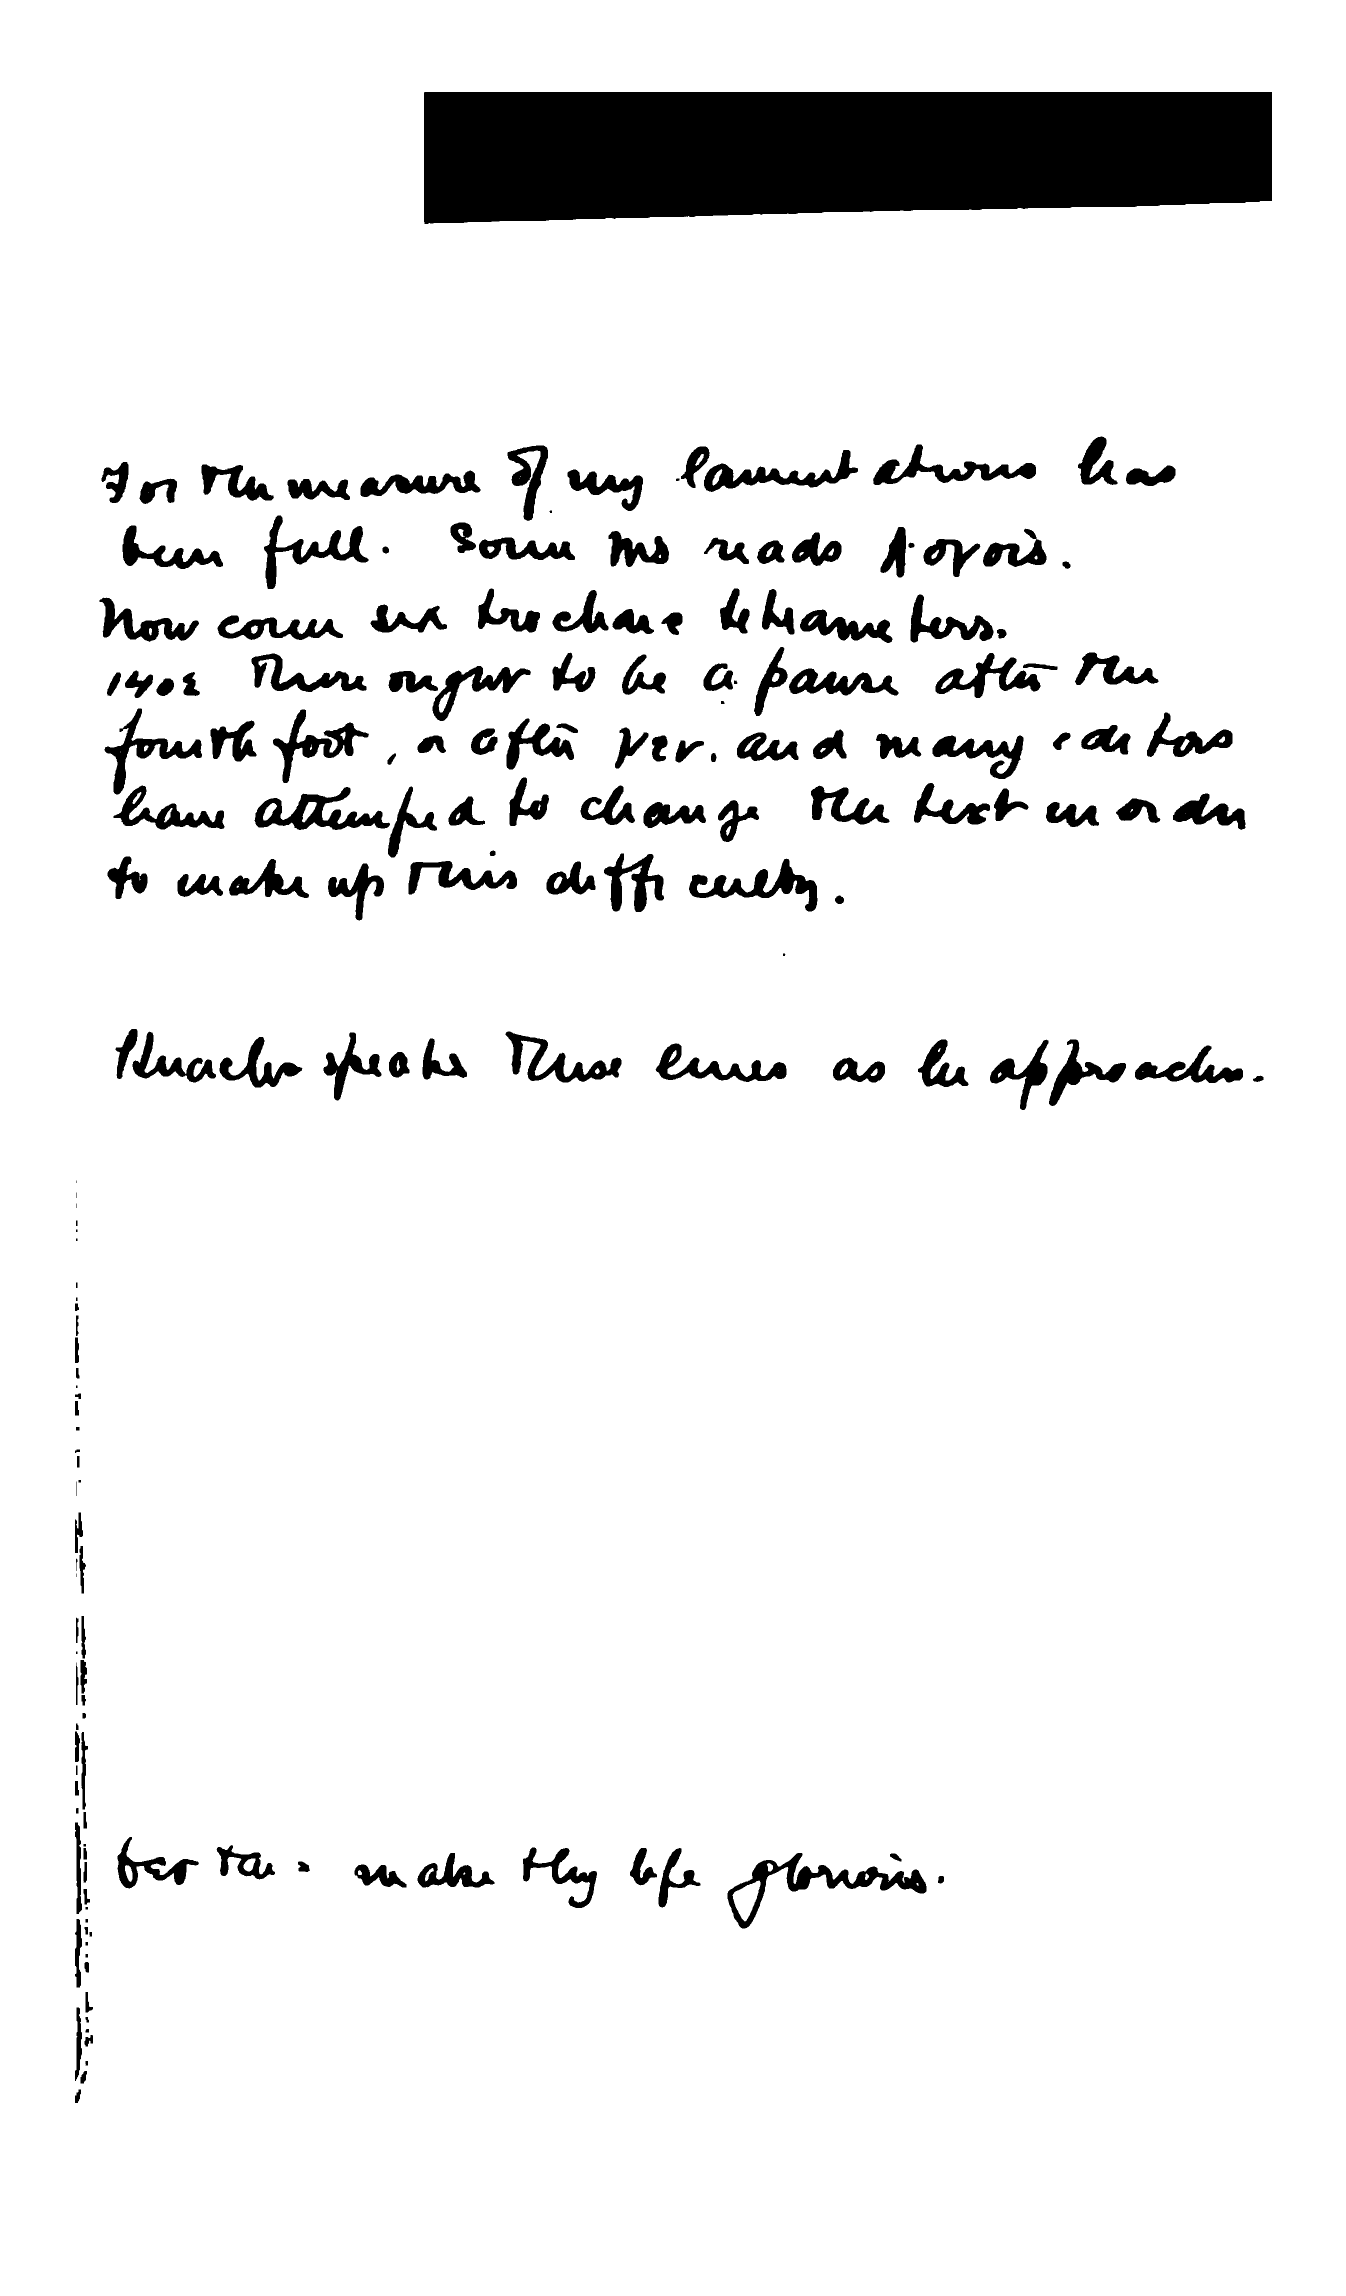 For the measure of my lamentations has
been full. Some MS reads λογοις.
Now come six trochaic tetrameters.
1402 There ought to be a pause after the
fourth foot, or after μεν. and many editors
have attemped to change the text in order
to make up this difficulty.
Heracles speaks these lines as he approaches.
θεσθαι - make thy life glorious.